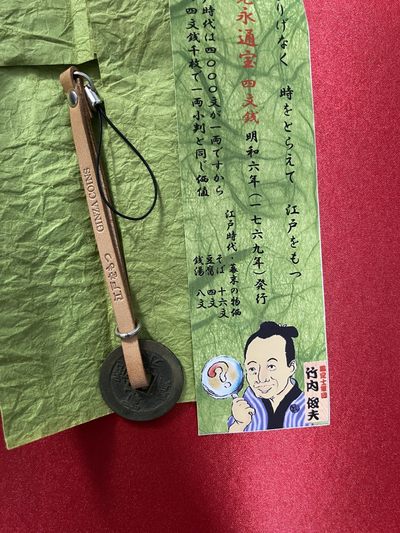 りげなく 時をとらえて 江戸をもつ
永通宝 四文銭 明和六年(一七六九年)発行
時代は四〇〇〇文が一両ですから
四文銭千枚で一両小判と同じ価値
江戸時代・幕末の物価
そば 十六文
豆腐 四文
銭湯 八文
竹内俊夫
GINZA COINS